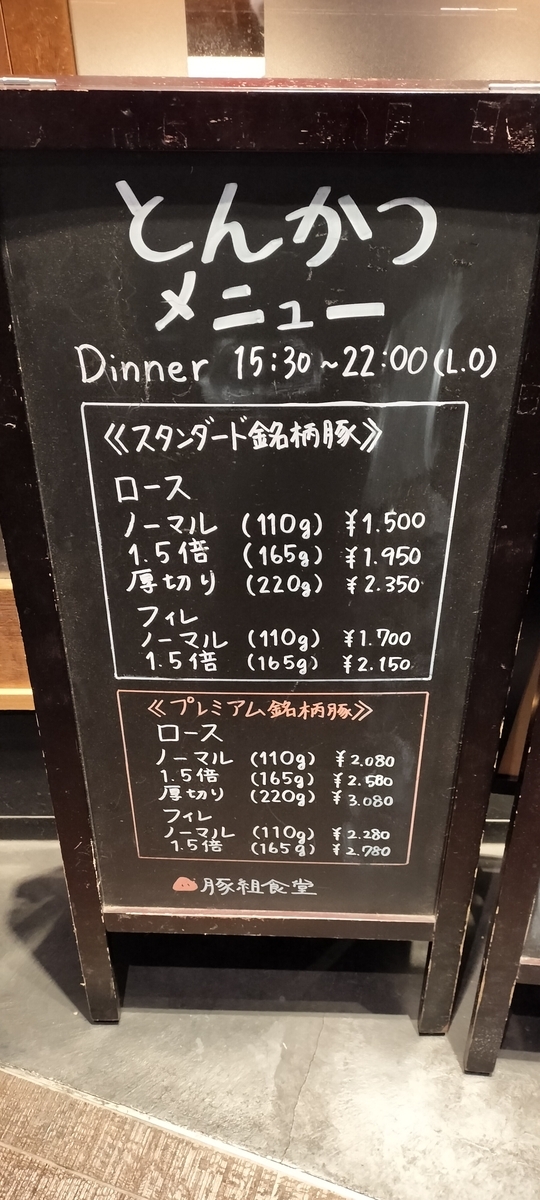 とんかつ
メニュー
Dinner 15:30~22:00(L.O)
《スタンダード銘柄豚》
ロース
ノーマル (110g) ¥1.500
1.5倍 (165g) ¥1.950
厚切り (220g) ¥2.350
フィレ
ノーマル (110g) ¥1.700
1.5倍 (165g) ¥2.150
《プレミアム銘柄豚》
ロース
ノーマル (110g) ¥2.080
1.5倍 (165g) ¥2.580
厚切り (220g) ¥3.080
フィレ
ノーマル (110g) ¥2.280
1.5倍 (165g) ¥2.780
豚組食堂